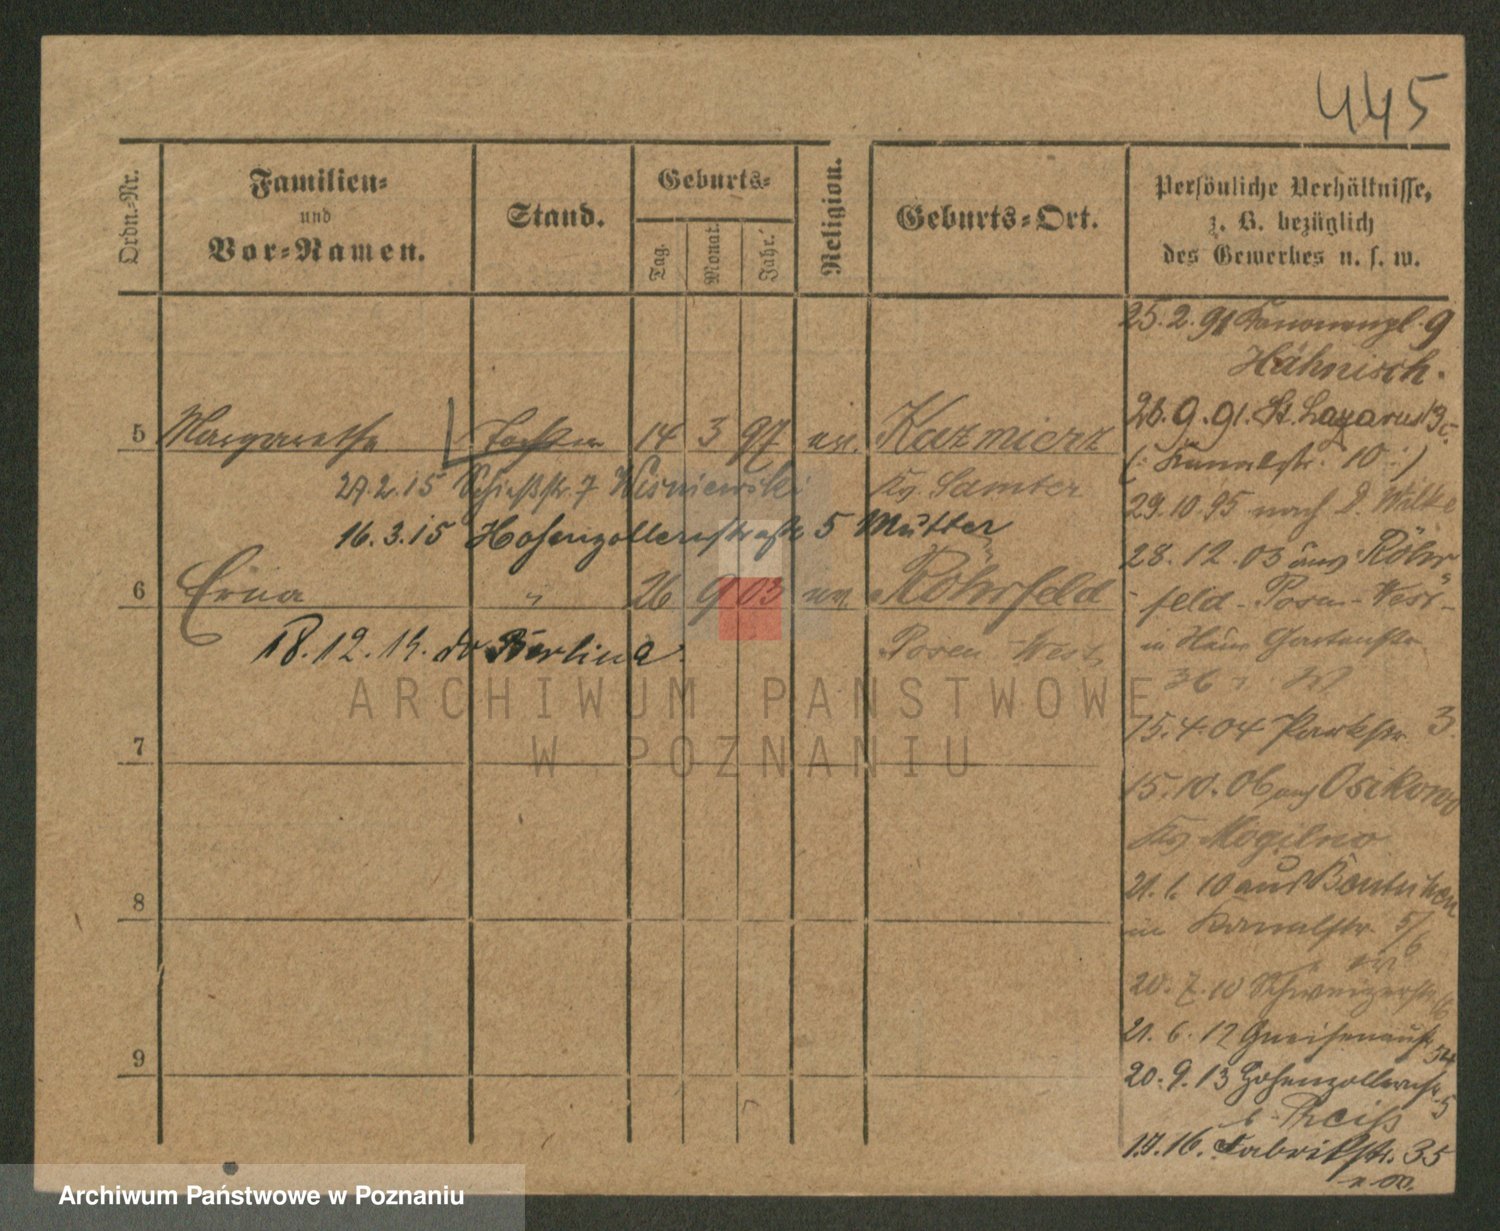 445
Ordn.-Nr.
Familien-
und
Vor-Namen.
Stand.
Geburts-
Tag.
Monat.
Jahr.
Religion.
Geburts-Ort.
Persönliche Verhältnisse,
z. B. bezüglich
des Gewerbes u. s. w.
5 Margarethe Tochter 14 3 97 ev. Kazmierz
27.2.15 Schießstr. 7 Wisniewski Kr. Samter
16.3.15 Hohenzollernstraße 5 Mutter
6 Erna " 26 9 03 ev. Röhrfeld
18.12.19. Berlin
Posen West
7
8
9
25.2.91 Kanonenpl. 9
Hähnisch.
26.9.91. St. Lazarus
(: Kanalstr. 10 :)
29.10.95 nach D. Wilke
28.12.03 aus Röhr
feld - Posen-West-
in Gartenstr.
15.4.04 Parkstr. 3.
15.10.06 aus Osikowo
Kr. Mogilno
21.1.10 aus
in Kanalstr. 5/6
20.7.10 Schweizerstr.
21.6.12 Gneisenaustr. 54
20.9.13 Hohenzollernstr. 5
b. Preiß
1.7.16. Fabrikstr. 35
ARCHIWUM PAŃSTWOWE
W POZNANIU
Archiwum Państwowe w Poznaniu